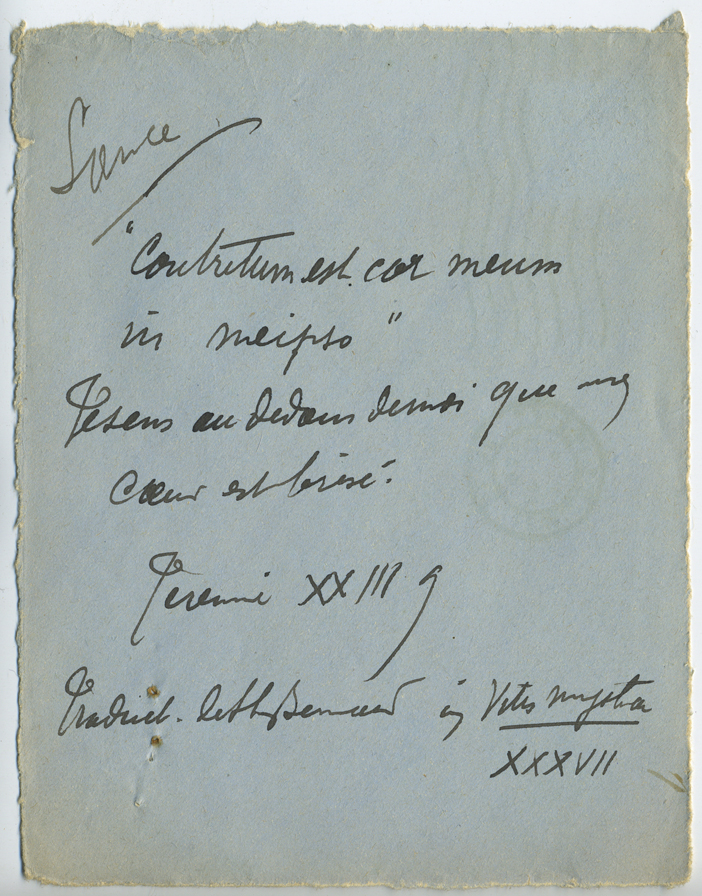 "Contritum est cor meum
in meipso"
Je sens au dedans de moi que mon
cœur est brisé.
Jeremie XXIII 9
Traduct. de St Bernard in Vitis mystica
XXXVII